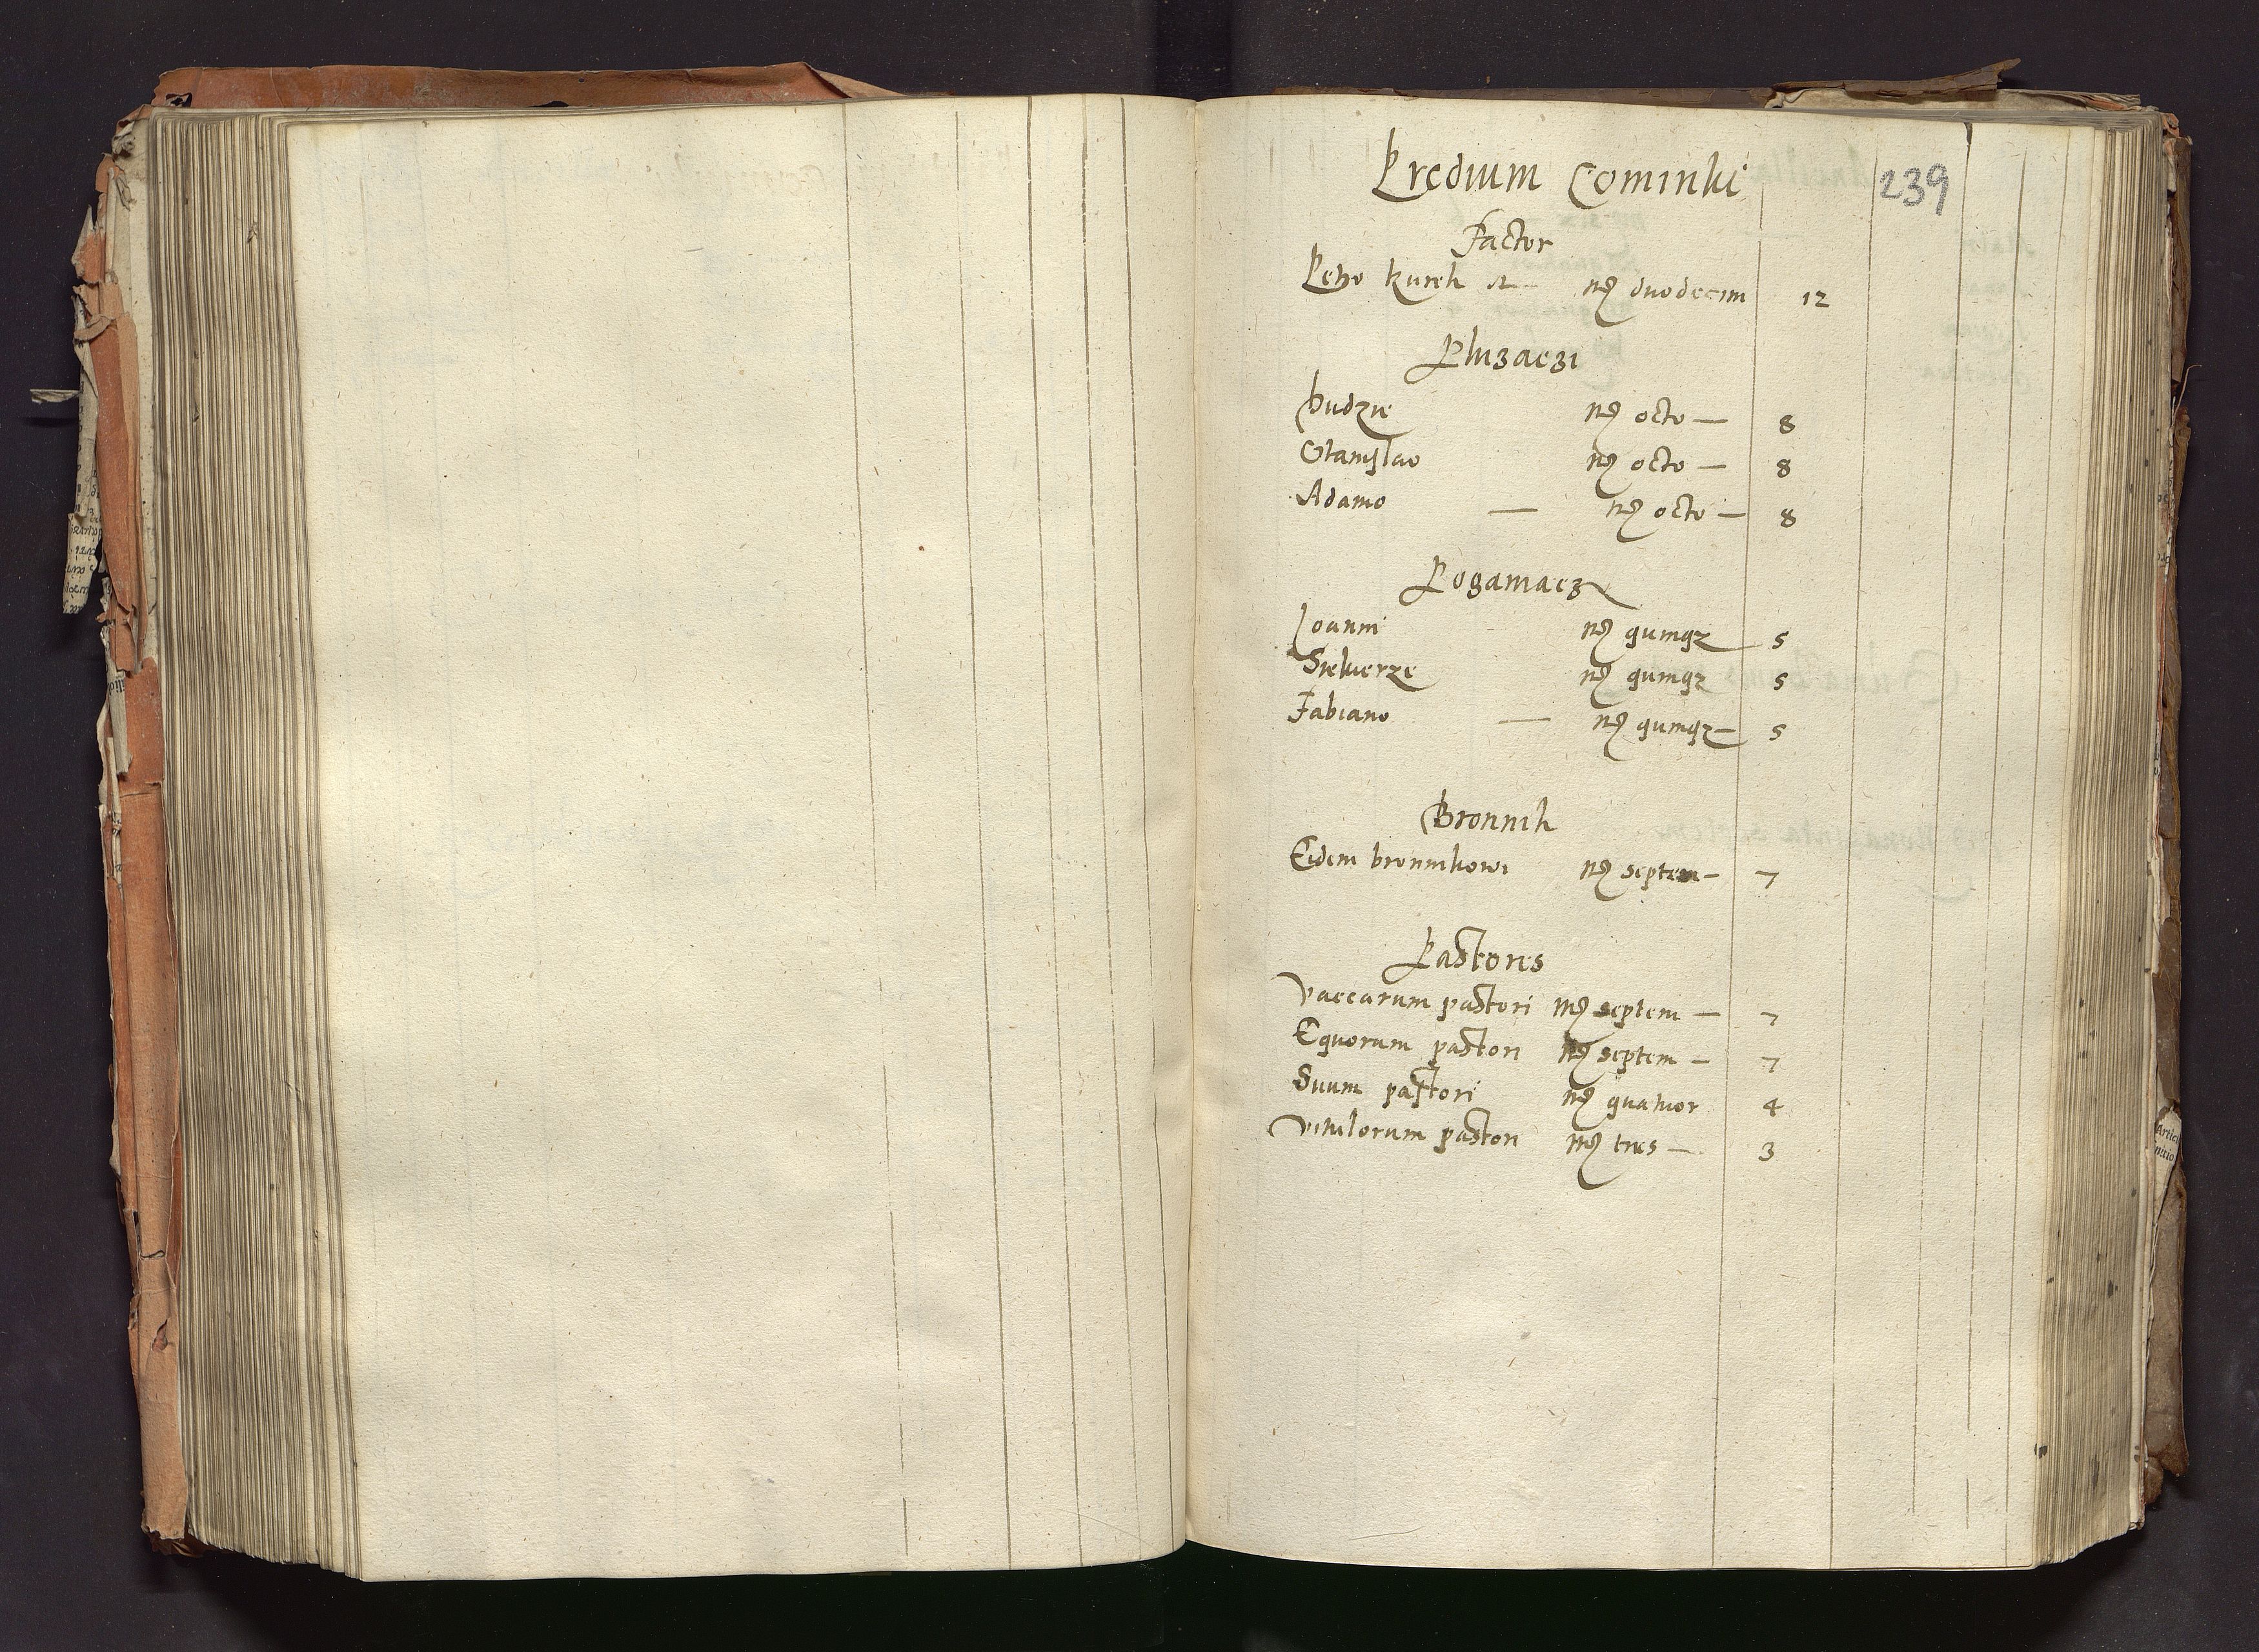 Predium Cominki
239
Factor
Petro kurek mg duodecim 12
Pluzaczi
Hudzie mg octo — 8
Stanislao mg octo — 8
Adamo — mg octo — 8
Poganiacz
Joanni mg quinqz 5
Siekierze mg quinqz 5
Fabiano — mg quinqz — 5
Bronnik
Eidem bronnikowi mg septem — 7
Pastores
Vaccarum pastori mg septem — 7
Equorum pastori mg septem — 7
Suum pastori mg quatuor 4
Vitulorum pastori mg tres — 3